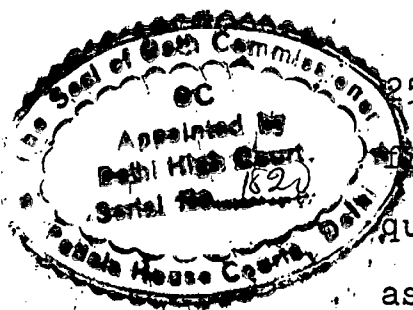 The Seal of Oath Commissioner
OC
Appointed by
Delhi High Court.
Serial No. 1820
Patiala House Courts, Delhi
qu
as